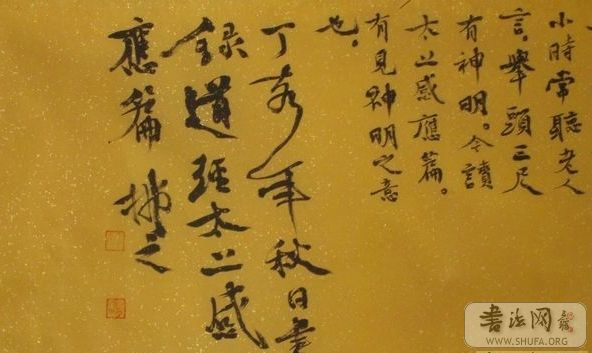 小時常聽老人
言。舉頭三尺
有神明。今讀
太上感應篇。
有見神明之意
也。
丁亥年秋日書
録道經太上感
應篇 拂之
書法网
WWW.SHUFA.ORG